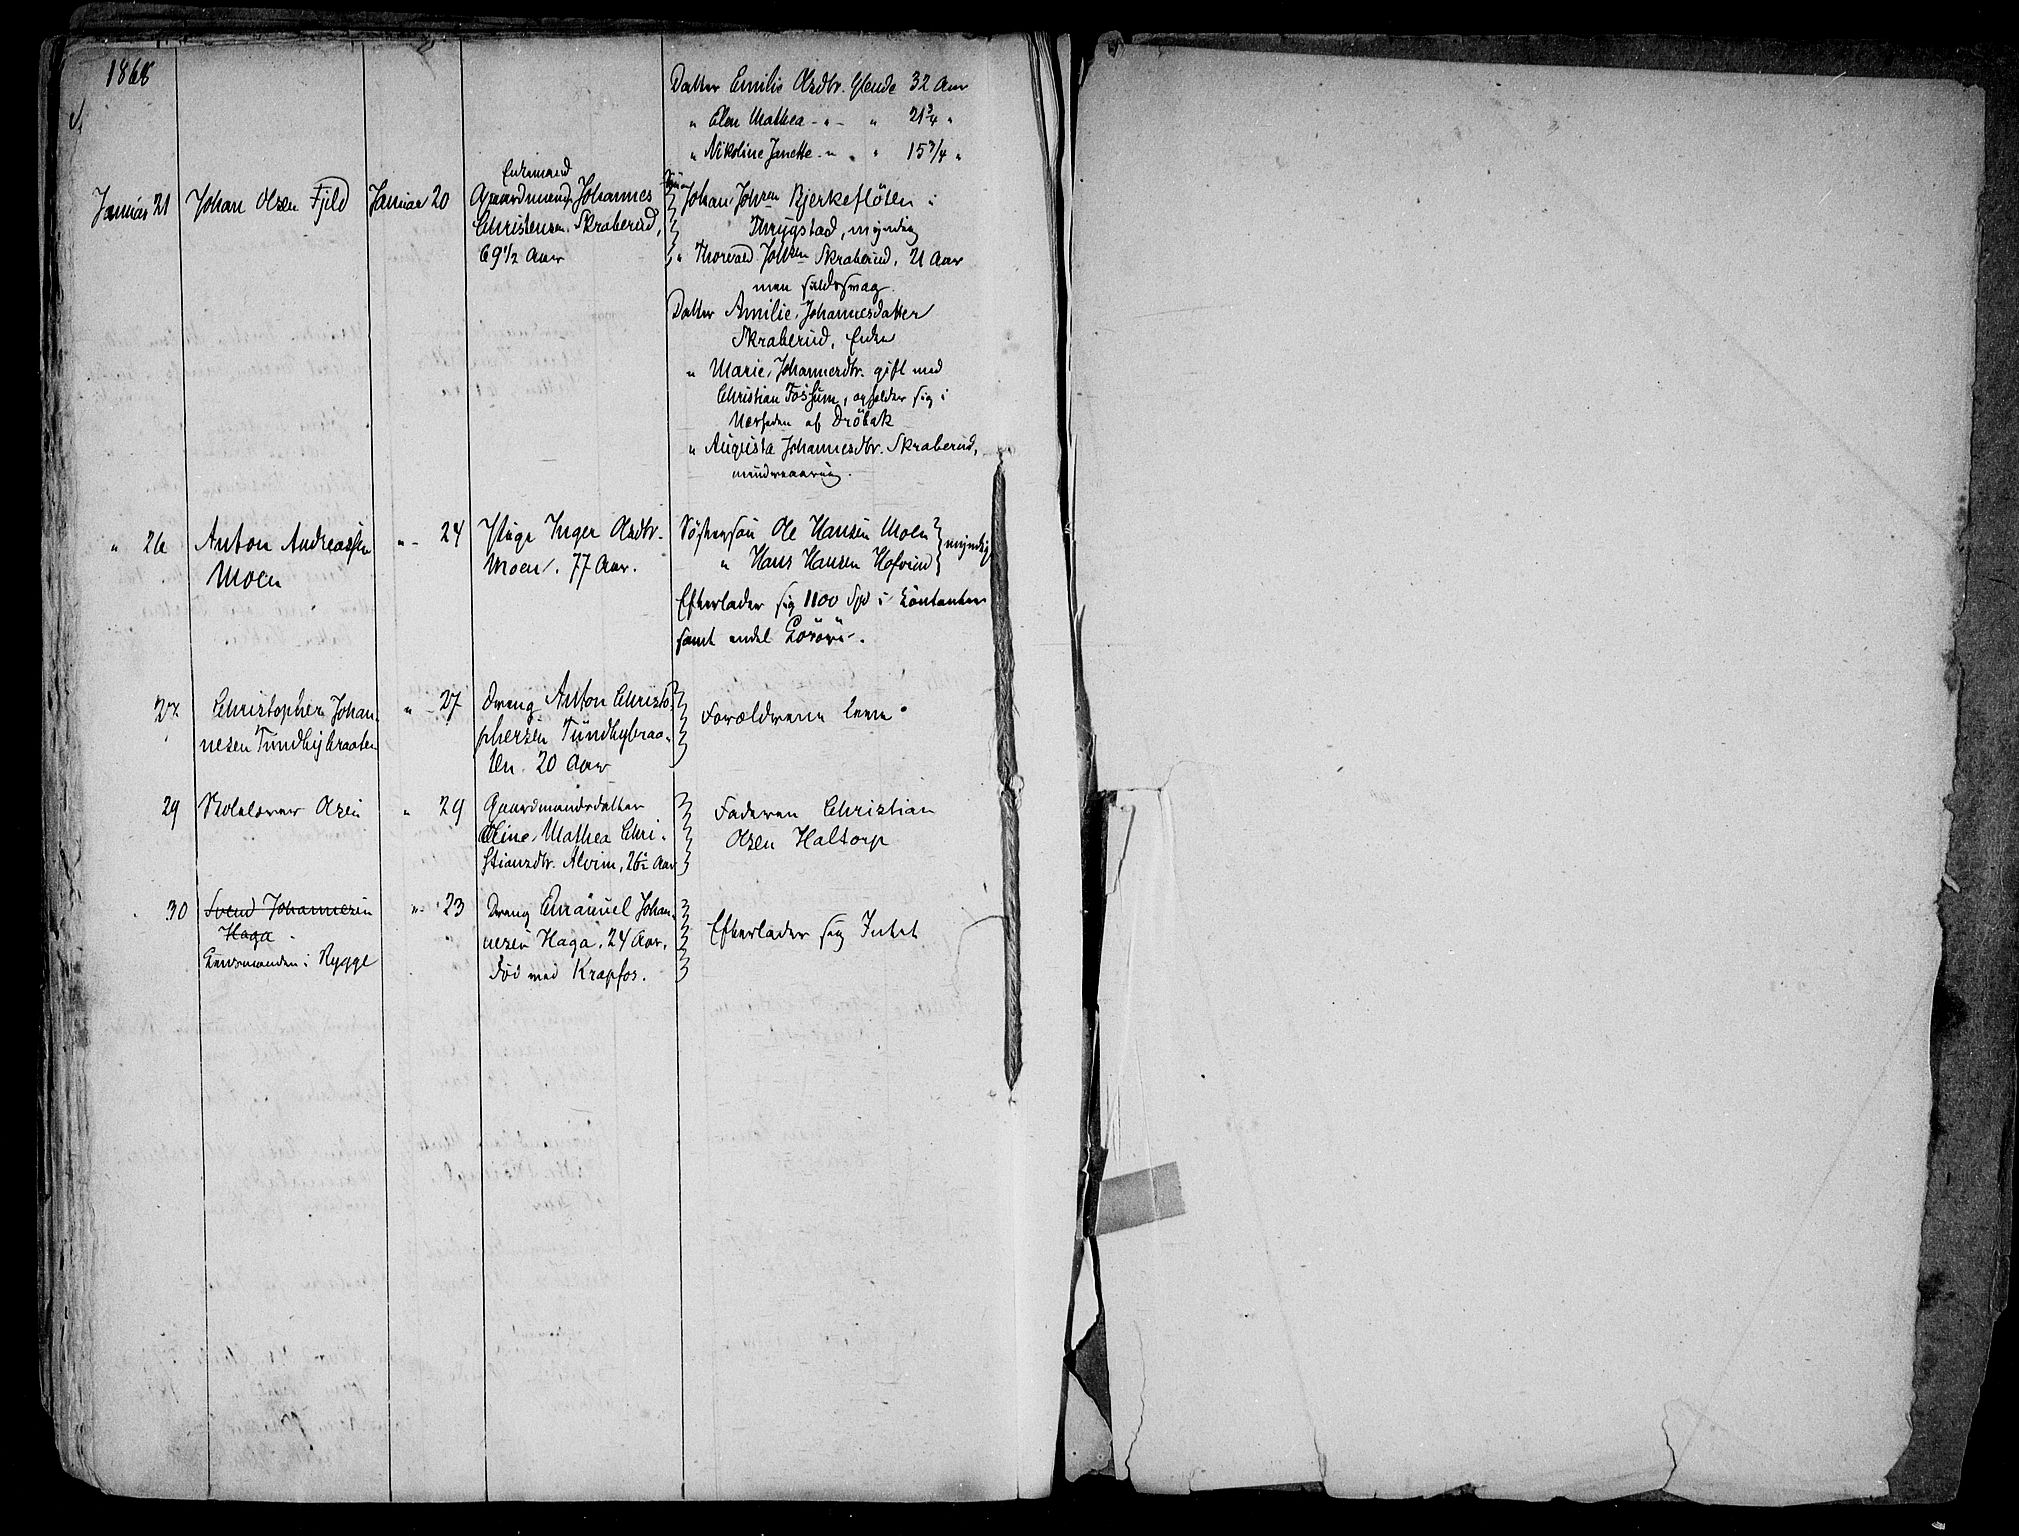 1868
Datter Emilie Olsdtr. Glende 32 Aar
" Elen Mathea - " - " 21 3/4 "
" Nikoline Janette - " - " 15 3/4 "
Januar 21 Johan Olsen Fjeld Januar 20
Enkemand
Gaardmand Johannes
Christensen Skraberud,
69 1/2 Aar
Søn Johan Johsen Bjerkefløten i
Thrygstad, myndig
" Thorvald Johsen Skraberud, 21 Aar
men
Datter Amilie Johannesdatter
Skraberud, Enke
" Marie Johannesdtr. gift med
Christian Fossum, opholder sig i
Nærheden af Drøbak
" Augusta Johannesdtr. Skraberud,
mindreaarig.
" 26 Anton Andreassen
Moen
" - 24 Pige Inger Olsdtr.
Moen. 77 Aar.
Søstersøn Ole Hansen Moen
" Hans Hansen Hofvind } myndig
Efterlader sig 1100 Spd i Contanter
samt endel Løsøre.
27 Christopher Johan-
nesen Tundbybraaten
" - 27 Dreng Anton Christo-
phersen Tundbybraa-
ten. 20 Aar
Forældrene leve.
29 Skolelærer Olsen
" 29 Gaardmandsdatter
Oline Mathea Chri-
stiansdtr. Alvim, 26 1/2 Aar
Faderen Christian
Olsen Haltorp
30 Svend Johannesen
Haga
Lensmanden i Rygge
" - 23 Dreng Emanuel Johan-
nesen Haga. 24 Aar.
Død ved Krapfos.
Efterlader sig Intet